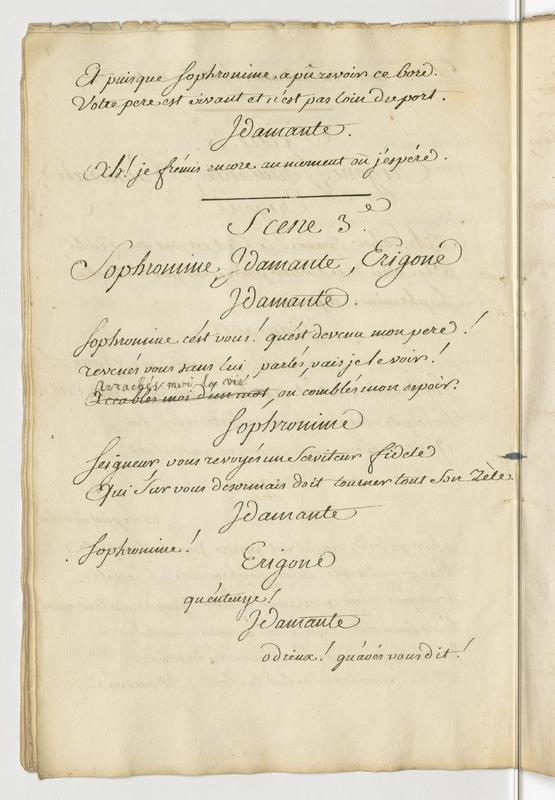 Et puisque Sophronime a pû revoir ce bord.
Votre pere est vivant et n'est pas loin du port.
Idamante.
Ah! je frémis encore au moment où j'espére.
Scene 3.e
Sophronime, Idamante, Erigone
Idamante.
Sophronime c'est vous! qu'est devenu mon pere!
revenés vous sans lui, parlés, vais je le voir!
arrachés moi la vie
Accablés moi d'un mot, ou comblés mon espoir.
Sophronime
Seigneur vous revoyés un Serviteur fidele
Qui Sur vous desormais doit tourner tout Son Zèle.
Idamante
Sophronime!
Erigone
qu'entenje!
Idamante
o dieux! qu'avés vous dit!